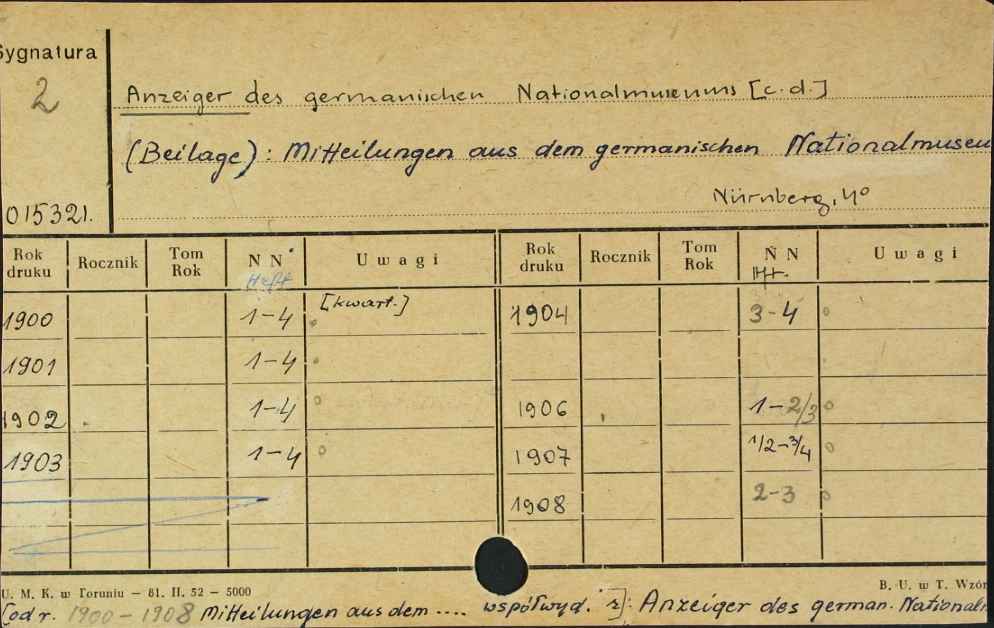 Sygnatura
2
Anzeiger des germanischen Nationalmuseums [c.d.]
(Beilage): Mitteilungen aus dem germanischen Nationalmuseu
015321.
Nürnberg, 4°
Rok druku Rocznik Tom Rok N N Uwagi Rok druku Rocznik Tom Rok N N Uwagi
Heft Hft.
1900 1-4 [kwart.] 1904 3-4
1901 1-4
1902 1-4 1906 1-2/3
1903 1-4 1907 1/2-3/4
1908 2-3
U. M. K. w Toruniu — 81. II. 52 — 5000
B. U. w T. Wzór
[od r. 1900-1908 Mitteilungen aus dem .... współwyd. z]: Anzeiger des german. Nationaln